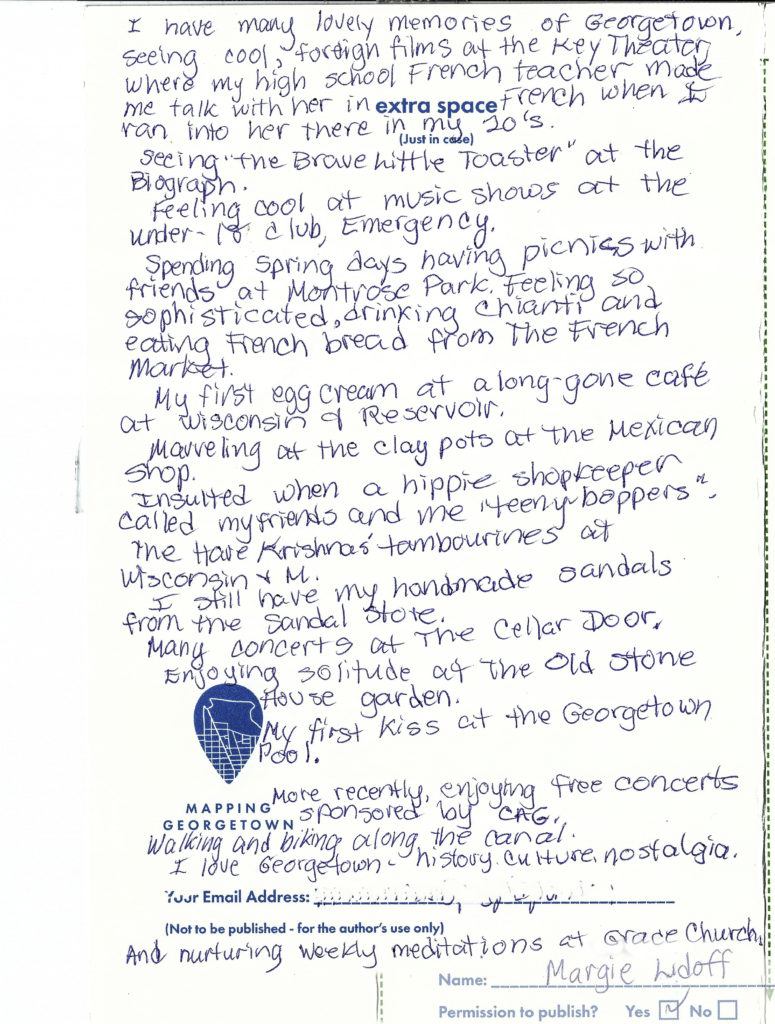 I have many lovely memories of Georgetown,
seeing cool, foreign films at the Key Theater,
where my high school French teacher made
me talk with her in extra space French when I
ran into her there in my 20's.
(Just in case)
Seeing "the Brave Little Toaster" at the
Biograph.
Feeling cool at music shows at the
under-18 club, Emergency.
Spending spring days having picnics with
friends at Montrose Park. Feeling so
sophisticated, drinking Chianti and
eating French bread from The French
Market.
My first egg cream at a long-gone café
at Wisconsin & Reservoir.
Marveling at the clay pots at The Mexican
Shop.
Insulted when a hippie shopkeeper
called my friends and me "teeny-boppers".
The Hare Krishnas' tambourines at
Wisconsin & M.
I still have my handmade sandals
from the Sandal Store.
Many concerts at The Cellar Door.
Enjoying solitude at The Old Stone
House garden.
My first kiss at the Georgetown
Pool.
More recently, enjoying free concerts
MAPPING
sponsored by CAG.
GEORGETOWN
Walking and biking along the canal.
I love Georgetown - history, culture, nostalgia.
Your Email Address:
(Not to be published - for the author's use only)
And nurturing weekly meditations at Grace Church.
Name: Margie Lidoff
Permission to publish? Yes No